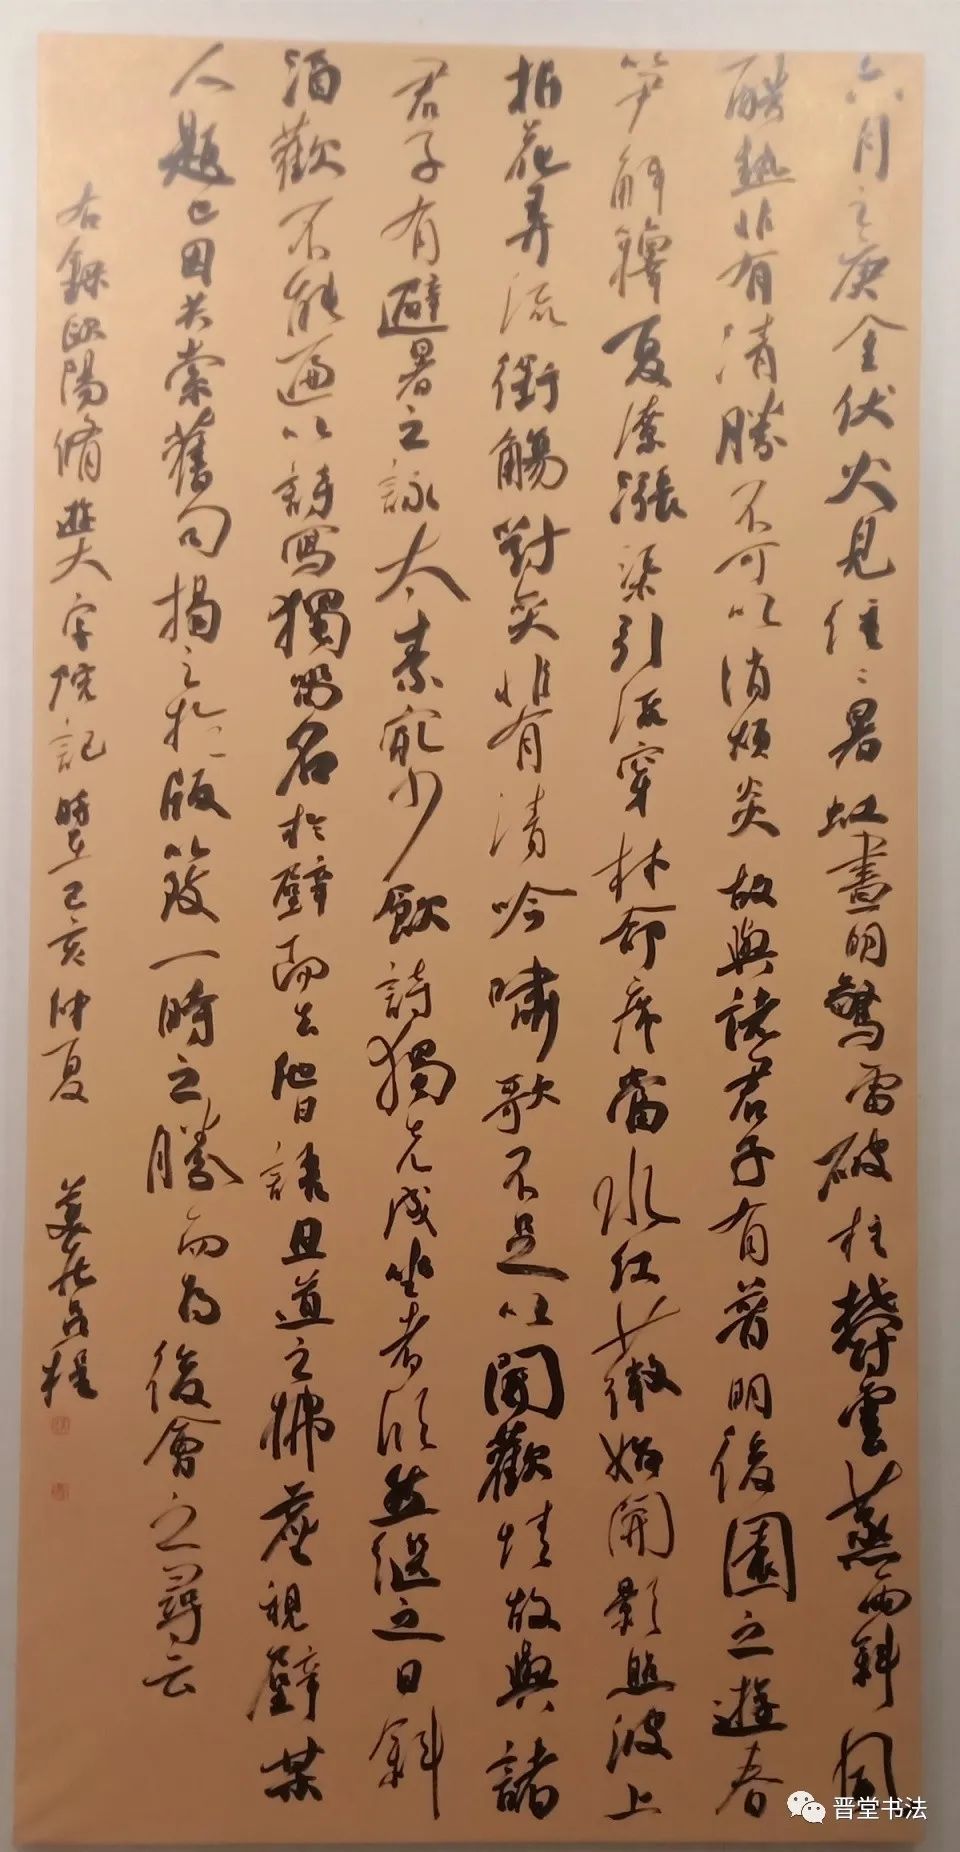 六月之庚金伏火見往〻暑虹晝明驚雷破柱鬱雲蒸雨斜風
酷熱非有清勝不可以消煩炎故與諸君子有普明後園之遊春
笋解籜夏潦漲渠引流穿林命席當水紅薇始開影照波上
折花弄流銜觴對奕非有清吟嘯歌不足以開歡情故與諸
君子有避暑之詠太素最少飲詩獨先成坐者欣然繼之日斜
酒歡不能遍以詩寫獨留名於壁而去他日語且道之拂塵視壁某
人題也因共索舊句揭之於版以致一時之勝而為後會之尋云
右錄歐陽脩遊大字院記 時在己亥仲夏
晋堂书法